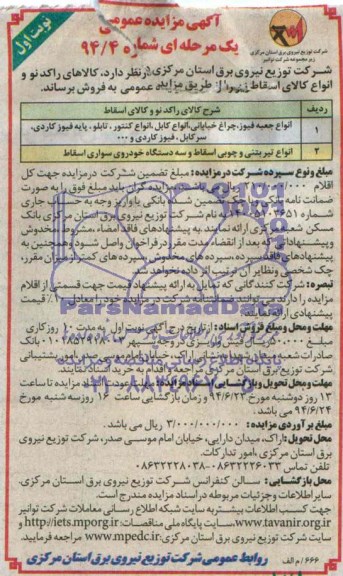 نوبت اول
آگهی مزایده عمومی
یک مرحله ای شماره ۹۴/۴
شرکت توزیع نیروی برق استان مرکزی
شرکت توزیع نیروی برق استان مرکزی در نظر دارد، کالاهای راکد نو و
انواع کالای اسقاط زیر را از طریق مزایده عمومی به فروش برساند.
ردیف شرح کالای راکد نو و کالای اسقاط
۱ انواع جعبه فیوز، چراغ خیابانی، انواع کابل، انواع کنتور، تابلو، پایه فیوز کاردی،
سرکابل، فیوز کاردی و ...
۲ انواع تیر بتنی و چوبی اسقاط و سه دستگاه خودروی سواری اسقاط
مبلغ و نوع سپرده شرکت در مزایده: مبلغ تضمین شرکت در مزایده جهت کل
ضمانت نامه بانکی یا چک تضمین شده بانکی یا واریز وجه به حساب جاری
به نام شرکت توزیع نیروی برق استان مرکزی بانک
مسکن شعبه مرکزی ارائه نمایند. به پیشنهادهای فاقد امضاء، مشروط، مخدوش
و پیشنهاداتی که بعد از انقضاء مدت مقرر در فراخوان واصل شود و همچنین به
پیشنهادهای فاقد سپرده، سپرده های مخدوش، سپرده های کمتر از میزان مقرر،
چک شخصی و نظایر آن ترتیب اثر داده نخواهد شد.
تبصره: شرکت کنندگانی که تمایل به ارائه پیشنهاد قیمت جهت قسمتی از اقلام
مزایده را دارند می توانند
پیشنهادی ارائه نمایند.
مهلت و محل و مبلغ فروش اسناد: از تاریخ درج آگهی نوبت اول به مدت ۱۰ روز کاری
شرکت توزیع نیروی برق استان مرکزی مراجعه و اقدام به خرید اسناد نمایند.
مهلت و محل تحویل و بازگشایی اسناد مزایده: مزایده تا ساعت
۱۳ روز دوشنبه مورخ ۹۴/۶/۲۳ و زمان بازگشایی ساعت ۱۶ روز سه شنبه مورخ
۹۴/۶/۲۴ می باشد.
مبلغ برآوردی مزایده: ۳/۰۰۰/۰۰۰/۰۰۰ ریال می باشد.
محل تحویل: اراک، میدان دارایی، خیابان امام موسی صدر، شرکت توزیع نیروی
برق استان مرکزی، امور تدارکات.
تلفن تماس ۰۸۶۳۲۲۲۶۰۳۳-۰۸۶۳۲۲۲۸۰۳۸
محل بازگشایی: سالن کنفرانس شرکت توزیع نیروی برق استان مرکزی.
سایر اطلاعات و جزئیات مربوطه در اسناد مزایده مندرج است.
جهت کسب اطلاعات بیشتر به سایت شبکه اطلاع رسانی معاملات شرکت توانیر
www.tavanir.org.ir، سایت پایگاه ملی مناقصات: http://iets.mporg.ir و
www.mpedc.ir مراجعه فرمایید.
۶۶۶/م الف روابط عمومی شرکت توزیع نیروی برق استان مرکزی
ParsNamadData